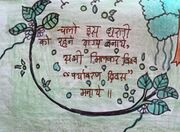 चलो इस धरती
को रहने योग्य बनाये,
सभी मिलकर विश्व
"पर्यावरण दिवस"
मनाये ॥